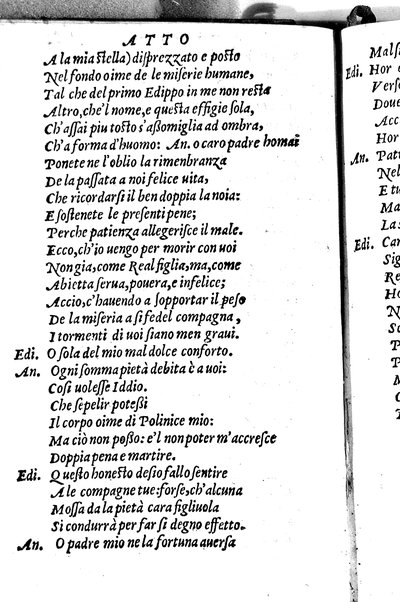 ATTO
A la mia stella) disprezzato e posto
Nel fondo oime de le miserie humane,
Tal che del primo Edippo in me non resta
Altro, che'l nome, e questa effigie sola,
Ch'assai piu tosto s'assomiglia ad ombra,
Ch'a forma d'huomo: An. o caro padre homai
Ponete ne l'oblio la rimenbranza
De la passata a noi felice uita,
Che ricordarsi il ben doppia la noia:
E sostenete le presenti pene;
Perche patienza allegerisce il male.
Ecco, ch'io uengo per morir con uoi
Non gia, come Real figlia, ma, come
Abietta serua, pouera, e infelice;
Accio, c'hauendo a sopportar il peso
De la miseria a si fedel compagna,
I tormenti di uoi siano men graui.
Edi. O sola del mio mal dolce conforto.
An. Ogni somma pietà debita è a uoi:
Cosi uolesse Iddio.
Che sepelir potessi
Il corpo oime di Polinice mio:
Ma ciò non posso: e'l non poter m'accresce
Doppia pena e martire.
Edi. Questo honesto desio fallo sentire
A le compagne tue: forse, ch'alcuna
Mossa da la pietà cara figliuola
Si condurrà per far si degno effetto.
An. O padre mio ne la fortuna auersa
Edi. Hor e
An. Pat
Nel
E tu
Ma
La s
Edi. Car
Sig